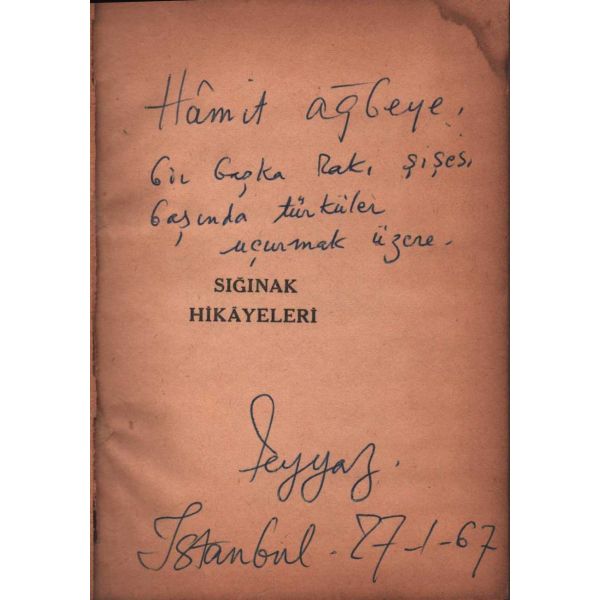 Hâmit ağbeye,
bir başka rakı şişesi
başında türküler
uçurmak üzere.
SIĞINAK
HİKÂYELERİ
Feyyaz.
İstanbul - 27-1-67